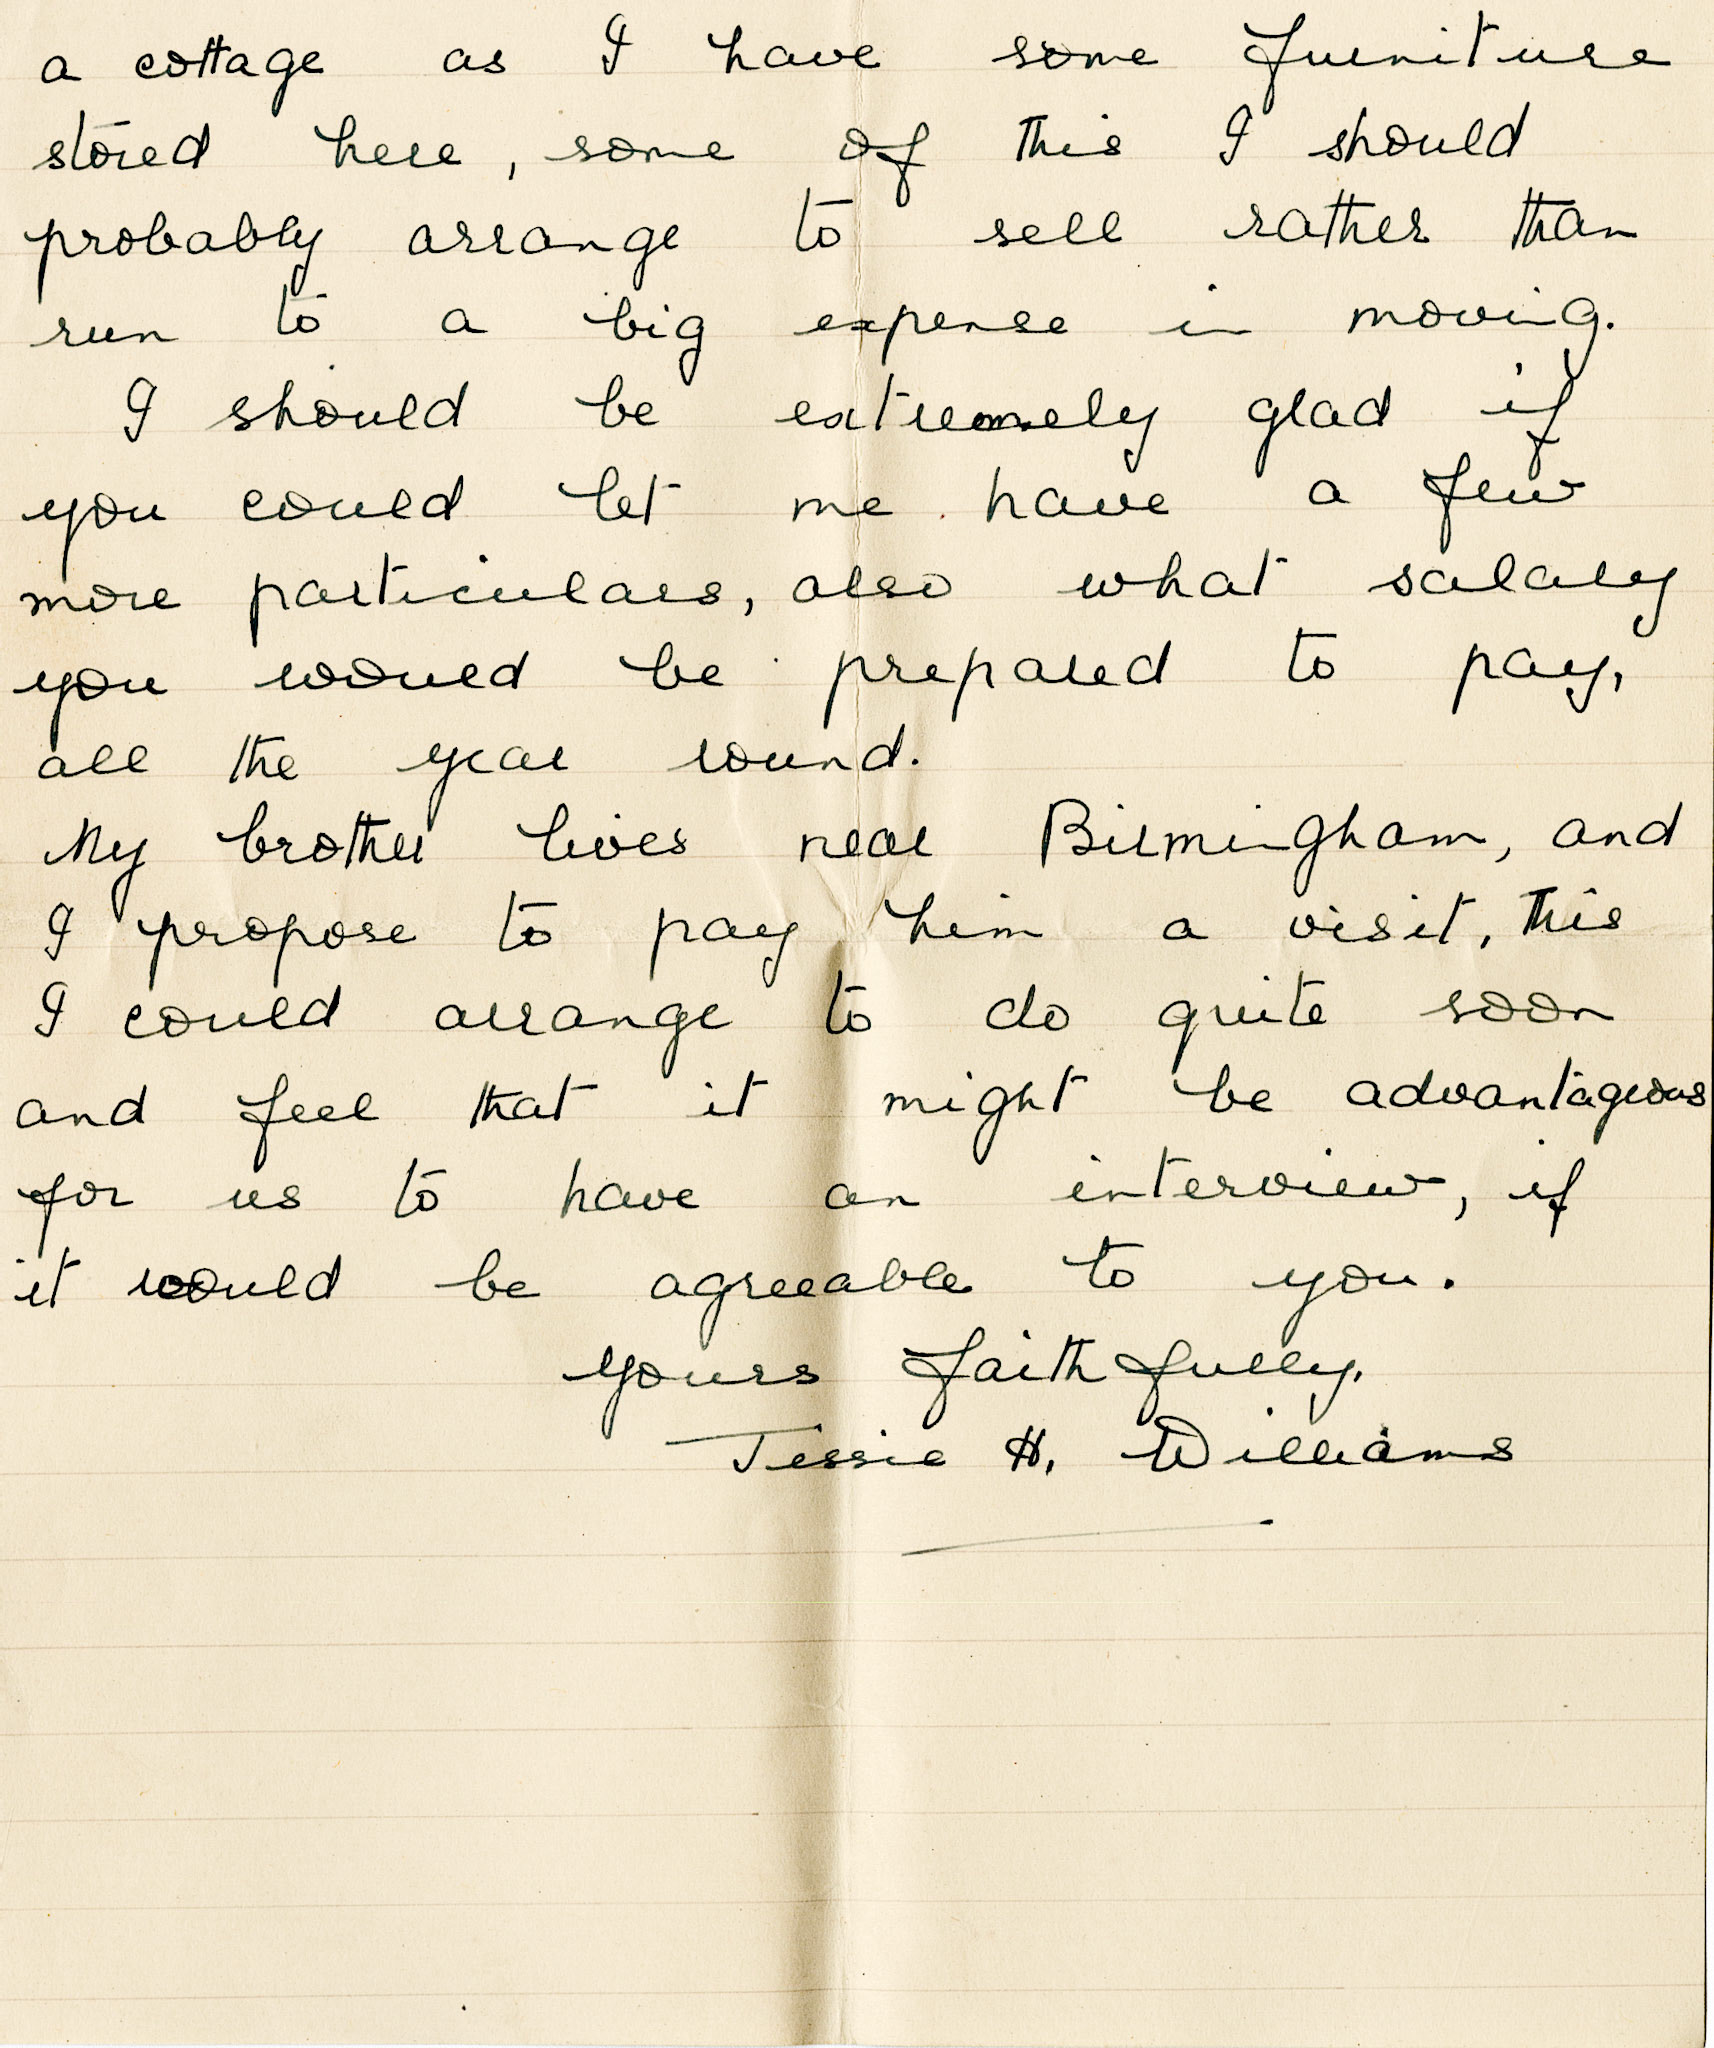 a cottage as I have some furniture
stored here, some of this I should
probably arrange to sell rather than
run to a big expense in moving.
I should be extremely glad if
you could let me have a few
more particulars, also what salary
you would be prepared to pay,
all the year round.
My brother lives near Birmingham, and
I propose to pay him a visit, this
I could arrange to do quite soon
and feel that it might be advantageous
for us to have an interview, if
it would be agreeable to you.
Yours faithfully,
Jessie H. Williams